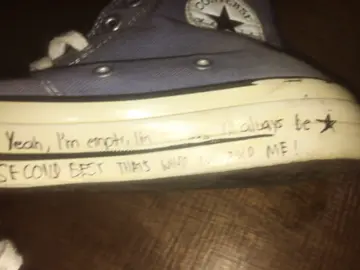 CONVERSE
Yeah, I'm empty, I'm always be
SECOND BEST THAT'S WHAT ME!